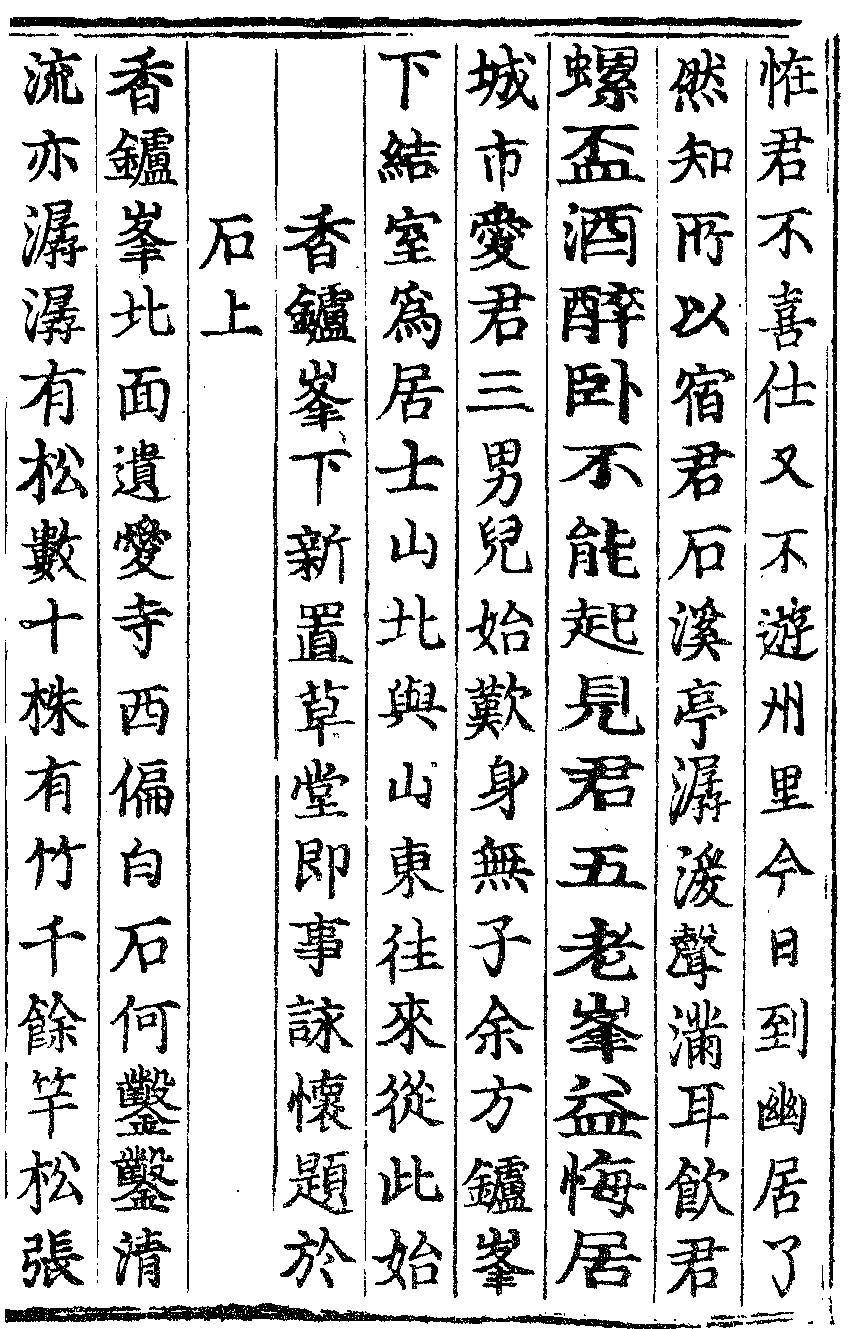 恠君不喜仕又不遊州里今日到幽居了
然知所以宿君石溪亭潺湲聲滿耳飲君
螺盃酒醉卧不能起見君五老峯益悔居
城市愛君三男兒始歎身無子余方鑪峯
下結室爲居士山北與山東往來從此始
香鑪峯下新置草堂即事詠懷題於
石上
香鑪峯北面遺愛寺西偏白石何鑿鑿清
流亦潺潺有松數十株有竹千餘竿松張